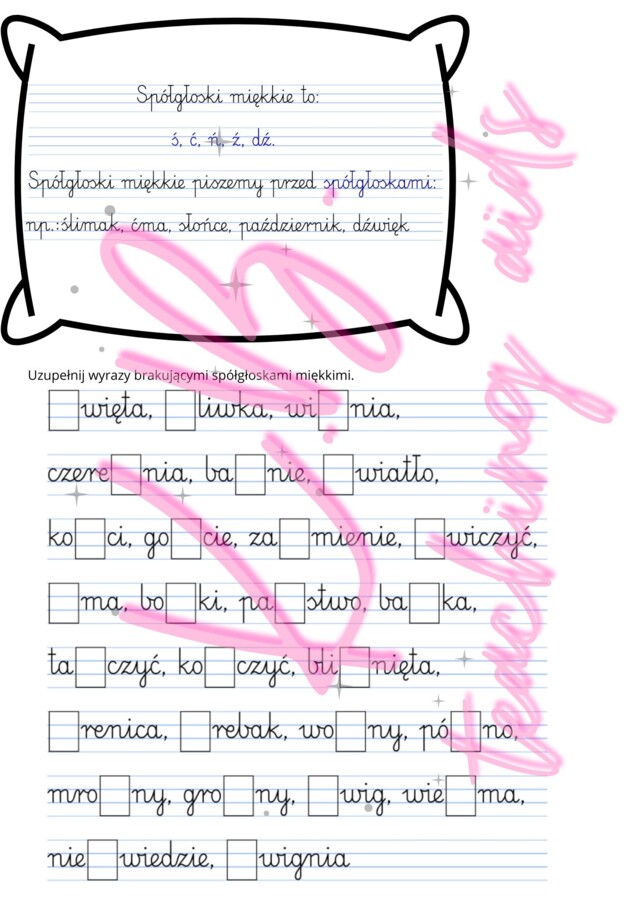 Spółgłoski miękkie to:
ś, ć, ń, ź, dź.
Spółgłoski miękkie piszemy przed spółgłoskami:
np.:ślimak, ćma, słońce, październik, dźwięk
Uzupełnij wyrazy brakującymi spółgłoskami miękkimi.
□więta, □liwka, wi□nia,
czere□nia, ba□nie, □wiatło,
ko□ci, go□cie, za□mienie, □wiczyć,
□ma, bo□ki, pa□stwo, ba□ka,
ta□czyć, ko□czyć, bli□nięta,
□renica, □rebak, wo□ny, pó□no,
mro□ny, gro□ny, □wig, wie□ma,
nie□wiedzie, □wignia
teaching aids